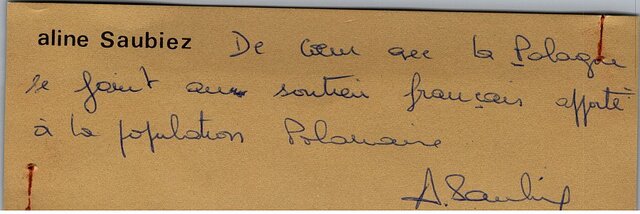 aline Saubiez De cœur avec la Pologne
se joint au soutien français apporté
à la population Polonaise
A. Saubiez